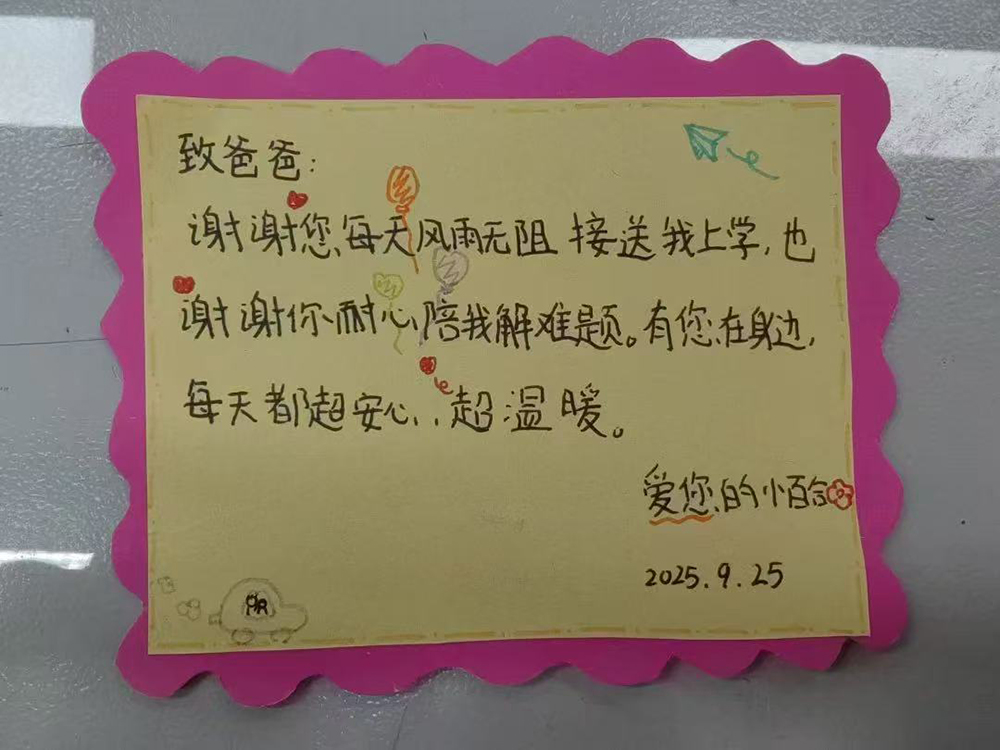 致爸爸:
谢谢您每天风雨无阻接送我上学,也
谢谢你耐心陪我解难题。有您在身边,
每天都超安心,超温暖。
爱您的小百合
2025.9.25